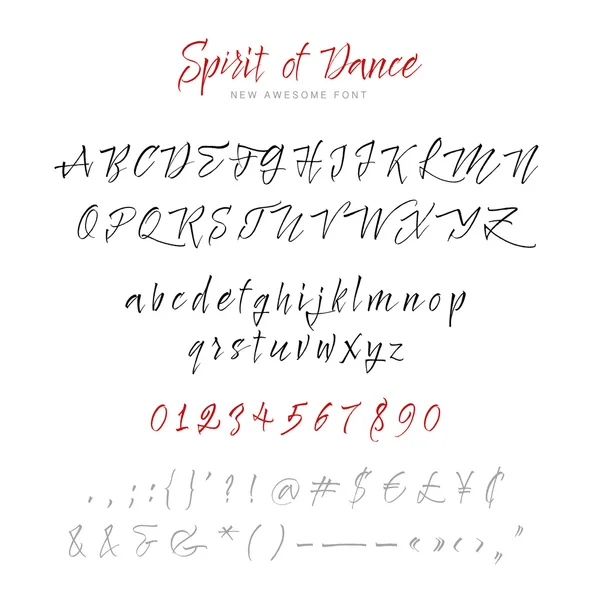 Spirit of Dance
NEW AWESOME FONT
ABCDEFGHIJKLMN
OPQRSTUVWXYZ
abcdefghijklmnop
qrstuvwxyz
01234567890
.,;:{}'?!@#$€£¥₵
&&&&*()-—-«»‹›„”